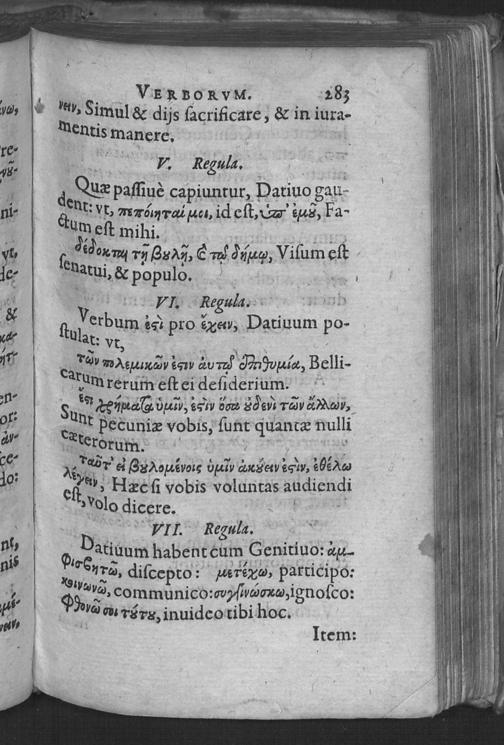 VERBORVM. 283
νειν, Simul & dijs sacrificare, & in iura-
mentis manere.
V. Regula.
Quæ passiuè capiuntur, Datiuo gau-
dent: vt, πεποίηταί μοι, id est, ὑπ' ἐμοῦ, Fa-
ctum est mihi.
δέδοκται τῇ βουλῇ, & τῷ δήμῳ, Visum est
senatui, & populo.
VI. Regula.
Verbum ἐςὶ pro ἔχειν, Datiuum po-
stulat: vt,
τῶν πολεμικῶν ἐςιν αὐτῷ ἐπιθυμία, Belli-
carum rerum est ei desiderium.
ἔςι χρήματα ὑμῖν, ἐςὶν ὅσα οὐδενὶ τῶν ἄλλων,
Sunt pecuniæ vobis, sunt quantæ nulli
cæterorum.
ταῦτ' εἰ βουλομένοις ὑμῖν ἀκούειν ἐςὶν, ἐθέλω
λέγειν, Hæc si vobis voluntas audiendi
est, volo dicere.
VII. Regula.
Datiuum habent cum Genitiuo: ἀμ-
φισβητῶ, discepto: μετέχω, participo:
κοινωνῶ, communico: συγγινώσκω, ignosco:
φθονῶ σοι τούτου, inuideo tibi hoc.
Item: